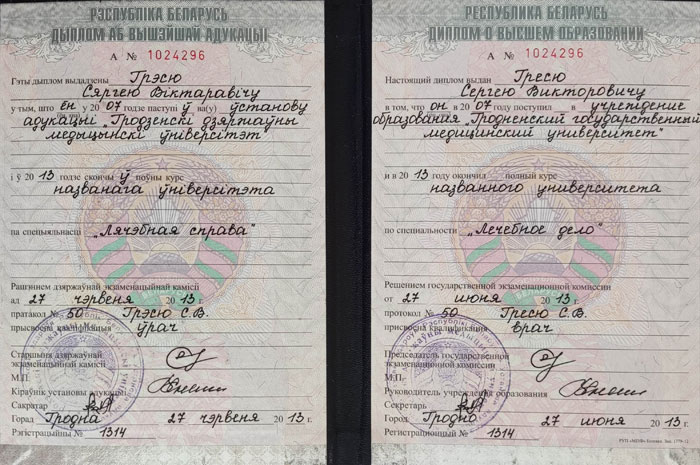 РЭСПУБЛІКА БЕЛАРУСЬ
ДЫПЛОМ АБ ВЫШЭЙШАЙ АДУКАЦЫІ
А № 1024296
Гэты дыплом выдадзены Грэсю
Сяргею Віктаравічу
у тым, што ён у 2007 годзе паступіў ва(у) ўстанову
адукацыі "Гродзенскі дзяржаўны
медыцынскі ўніверсітэт
і ў 2013 годзе скончыў поўны курс
названага ўніверсітэта
па спецыяльнасці "Лячэбная справа"
Рашэннем дзяржаўнай экзаменацыйнай камісіі
ад 27 чэрвеня 2013 г.
пратакол № 50 Грэсю С.В.
прысвоена кваліфікацыя ўрач
Старшыня дзяржаўнай
экзаменацыйнай камісіі
М.П.
Кіраўнік установы адукацыі
Сакратар
Горад Гродна 27 чэрвеня 2013 г.
Рэгістрацыйны № 1314
РЕСПУБЛИКА БЕЛАРУСЬ
ДИПЛОМ О ВЫСШЕМ ОБРАЗОВАНИИ
А № 1024296
Настоящий диплом выдан Гресю
Сергею Викторовичу
в том, что он в 2007 году поступил в учреждение
образования "Гродненский государственный
медицинский университет"
и в 2013 году окончил полный курс
названного университета
по специальности "Лечебное дело"
Решением государственной экзаменационной комиссии
от 27 июня 2013 г.
протокол № 50 Гресю С.В.
присвоена квалификация врач
Председатель государственной
экзаменационной комиссии
М.П.
Руководитель учреждения образования
Секретарь
Город Гродно 27 июня 2013 г.
Регистрационный № 1314